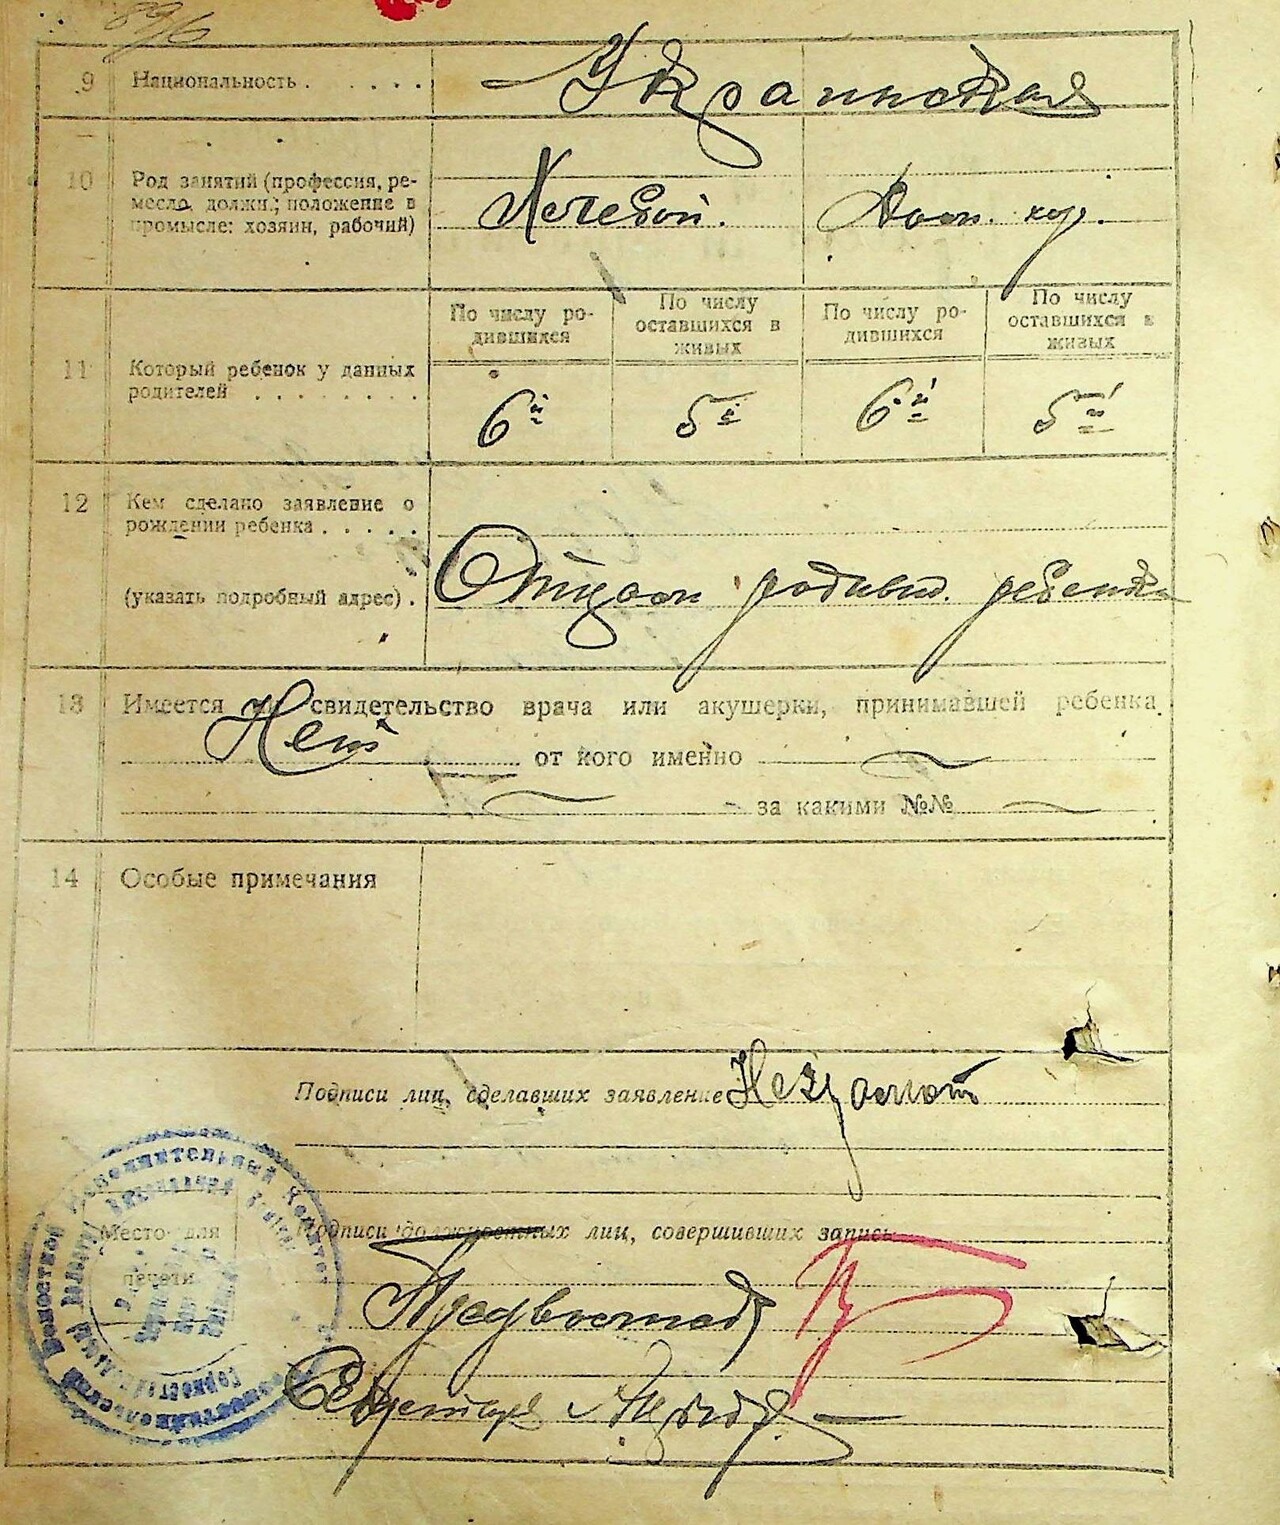 9 Национальность . . . . . Украинская
10 Род занятий (профессия, ре-
месло, должн.; положение в
промысле: хозяин, рабочий)
По числу ро-
дившихся
По числу
оставшихся в
живых
По числу ро-
дившихся
По числу
оставшихся в
живых
11 Который ребенок у данных
родителей . . . . . . . .
6й 5й 6й 5й
12 Кем сделано заявление о
рождении ребенка . . . . .
(указать подробный адрес) . Отцом родивш. ребенка
13 Имеется ли свидетельство врача или акушерки, принимавшей ребенка
Нет от кого именно
за какими №№
14 Особые примечания
Подписи лиц, сделавших заявление Неграмот
Подписи должностных лиц, совершивших запись
Место для
печати
Исполнительный Комитет
Секретарь